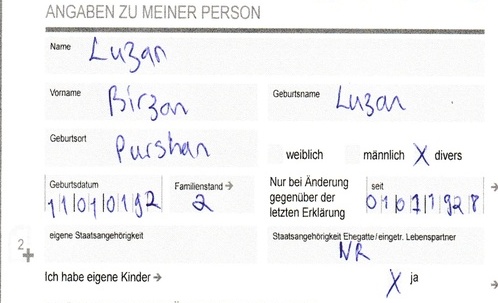 ANGABEN ZU MEINER PERSON
Name Luzan
Vorname Birzan Geburtsname Luzan
Geburtsort Purshan weiblich männlich X divers
Geburtsdatum 11010192 Familienstand → 2 Nur bei Änderung gegenüber der letzten Erklärung seit →
2 eigene Staatsangehörigkeit Staatsangehörigkeit Ehegatte/eingetr. Lebenspartner NR
Ich habe eigene Kinder → X ja →